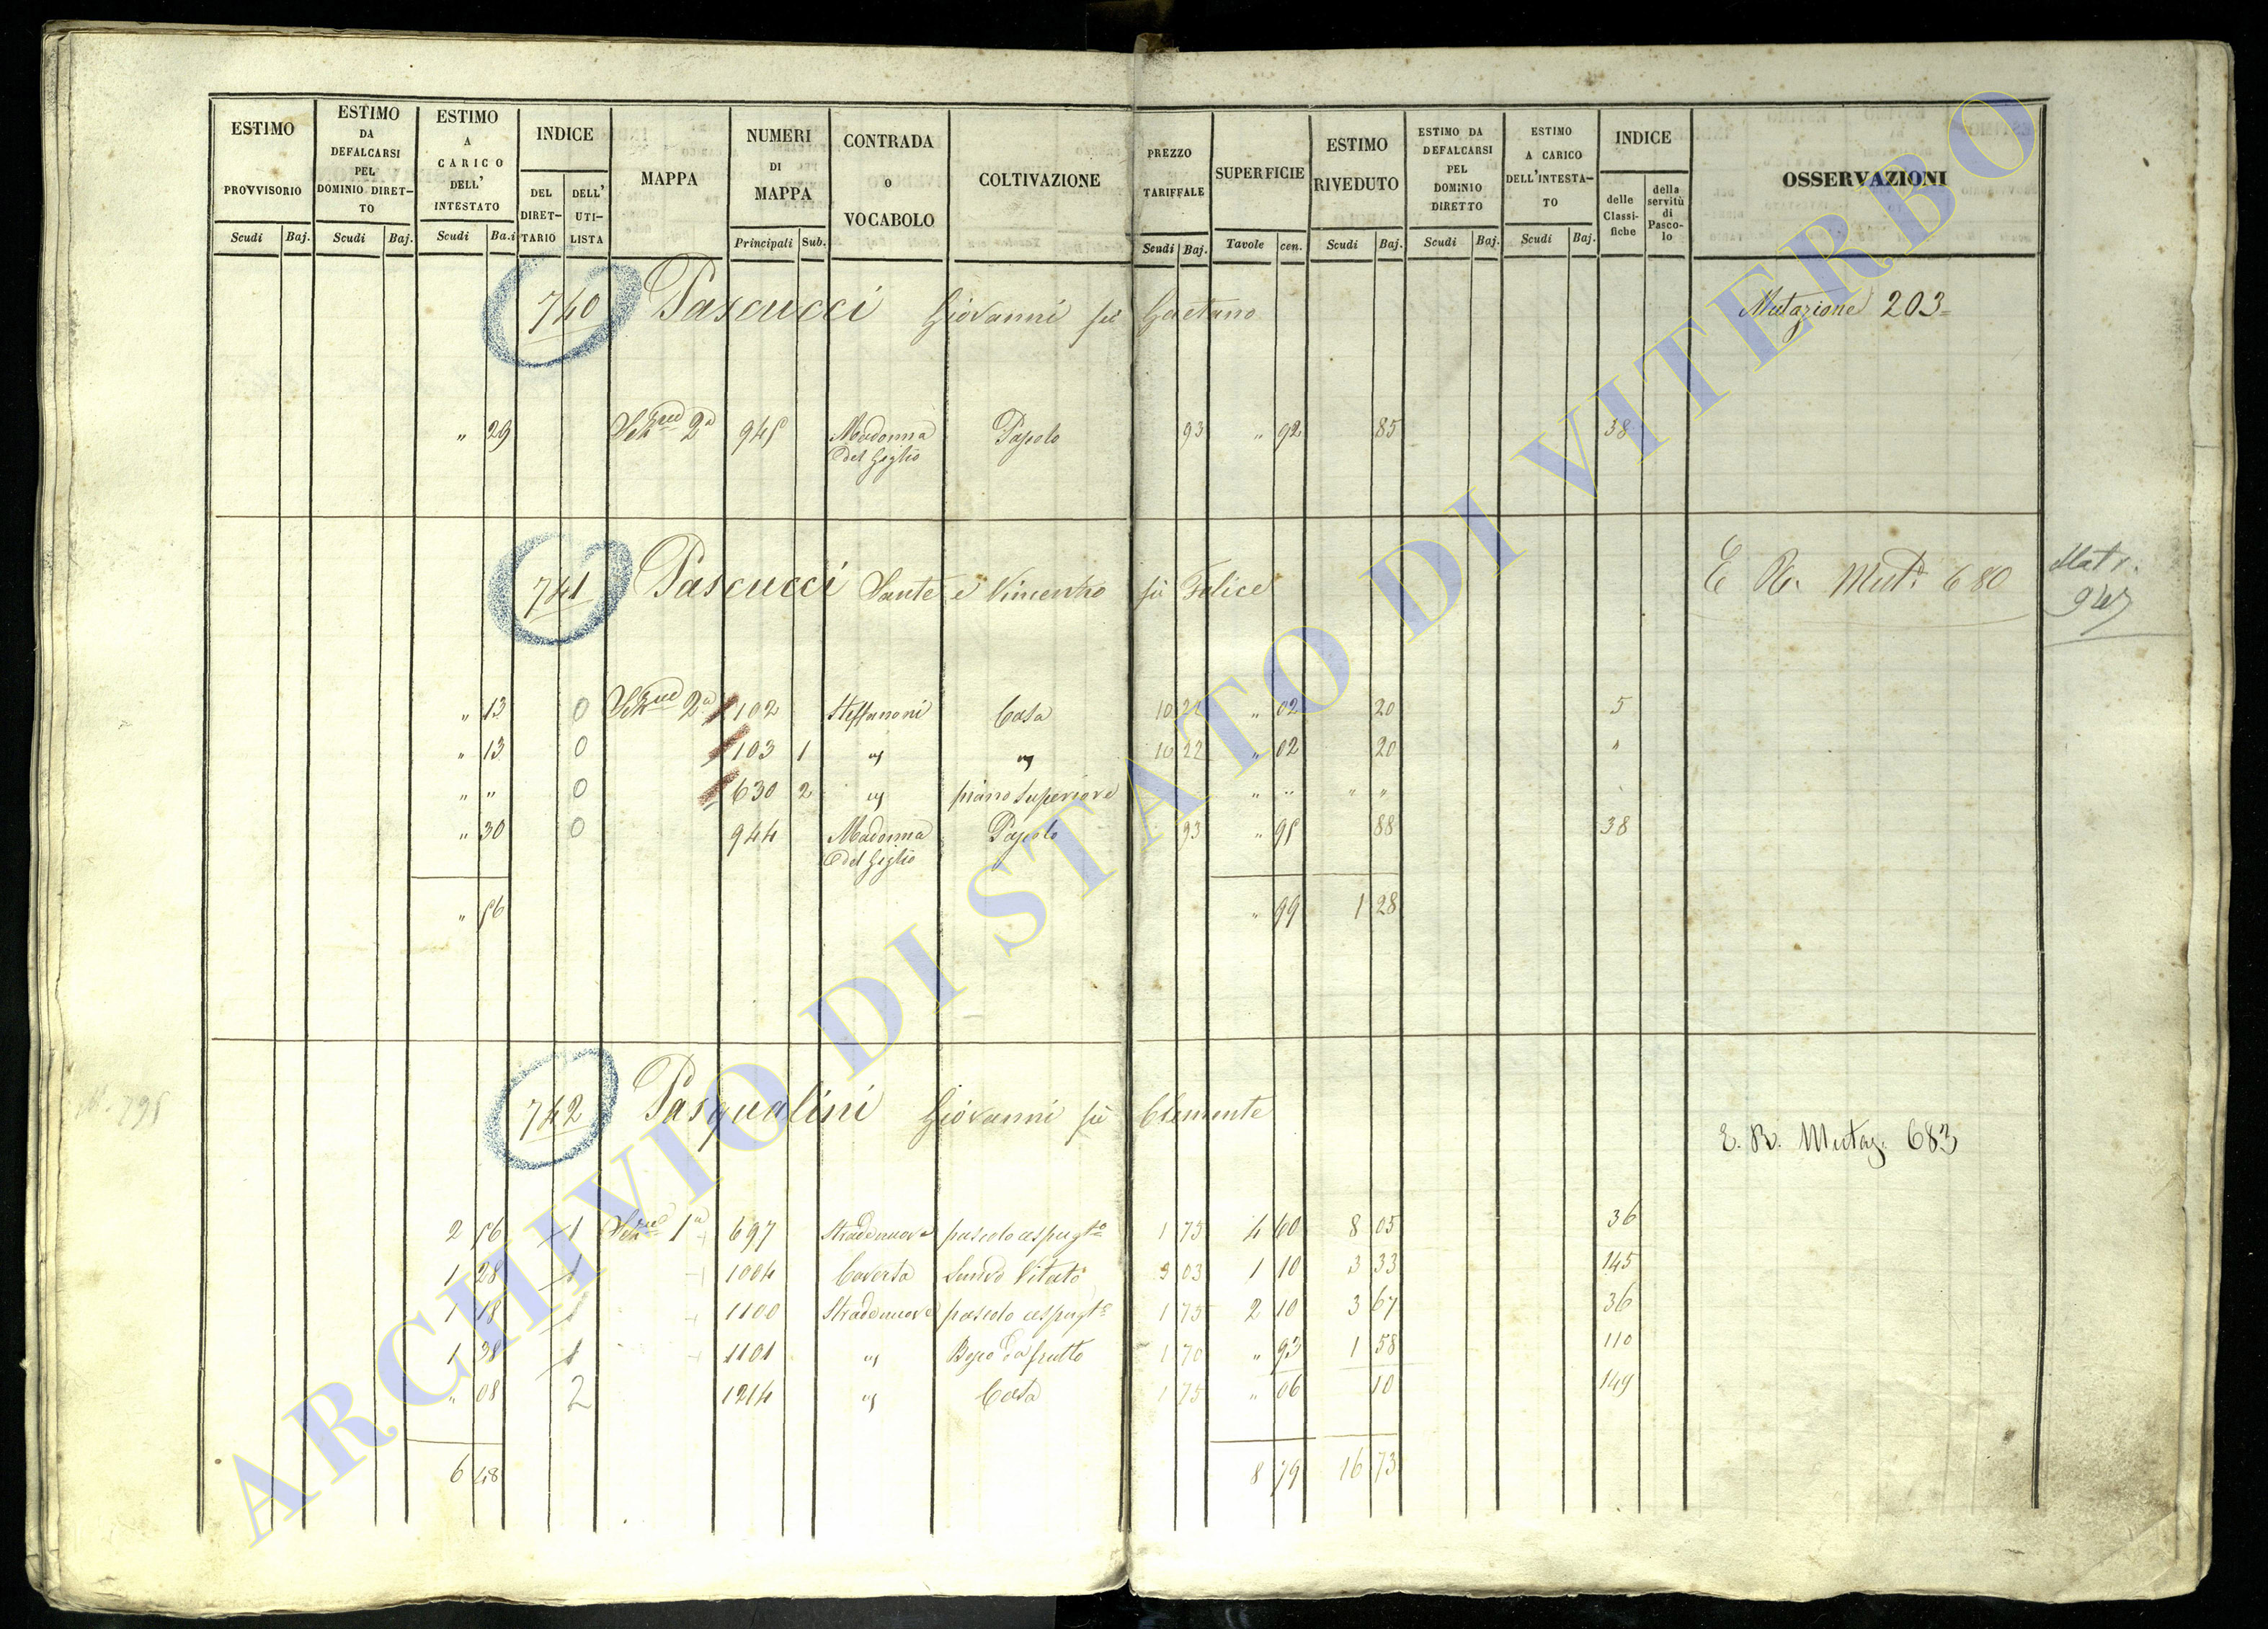 ESTIMO PROVVISORIO
ESTIMO DA DEFALCARSI PEL DOMINIO DIRET-TO
ESTIMO A CARICO DELL' INTESTATO
INDICE
DEL DIRET-TARIO
DELL' UTI-LISTA
MAPPA
NUMERI DI MAPPA
CONTRADA o VOCABOLO
COLTIVAZIONE
PREZZO TARIFFALE
SUPERFICIE
ESTIMO RIVEDUTO
ESTIMO DA DEFALCARSI PEL DOMINIO DIRETTO
ESTIMO A CARICO DELL'INTESTA-TO
INDICE
delle Classi-fiche
della servitù di Pasco-lo
OSSERVAZIONI
Scudi Baj. Scudi Baj. Scudi Ba.i Principali Sub. Scudi Baj. Tavole cen. Scudi Baj. Scudi Baj. Scudi Baj.
740 Pascucci Giovanni fù Gaetano Mutazione 203=
" 29 2a 945 Madonna del Giglio 93 " 92 85 38
741 Pascucci Sante e Vincenzo fù Felice E R. Mut. 680
Matr.
" 13 0 2a 102 Steffanoni Casa 10 22 " 02 20 5
" 13 0 103 1 " " 10 22 " 02 20 "
" " 0 630 2 " piano Superiore " " " "
" 30 0 944 Madonna del Giglio 93 " 95 88 38
" 56 " 99 1 28
742 Pasqualini Giovanni fù Clemente
E. R. Mutaz. 683
2 56 1 1a 697 Stradanuova pascolo cespugto 1 75 4 60 8 05 36
1 28 1 1004 Caverta Vitato 3 03 1 10 3 33 145
1 18 1 1100 Stradanuova pascolo cespugto 1 75 2 10 3 67 36
1 38 1 1101 " Bosco da frutto 1 70 " 93 1 58 110
" 08 2 1214 " Casa 1 75 " 06 10 149
6 48 8 79 16 73
ARCHIVIO DI STATO DI VITERBO